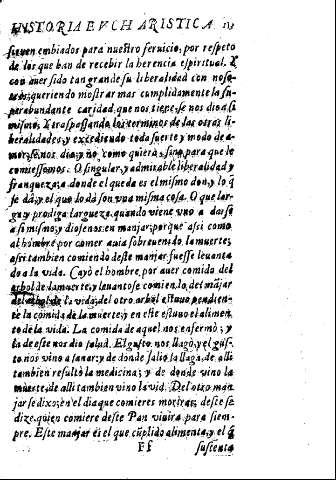 HISTORIA EVCHARISTICA.
sieren embiados para nuestro seruicio, por respeto
de los que han de recebir la herencia espiritual. Y
con auer sido tan grande su liberalidad con noso-
tros, queriendo mostrar mas cumplidamente la su-
perabundante caridad que nos tiene, se nos dio a si
mismo, y traspassando los terminos de las otras li-
beralidades, y excediendo toda suerte y modo de a-
mor, se nos dia, y no como quiera, sino para que le
comiessemos. O singular, y admirable liberalidad y
franqueza, a donde el queda es el mismo don, y lo q̃
se dà, y el que lo dà son vna misma cosa. O que lar-
ga y prodiga largueza, quando viene vno a darse
a si mismo, y diosenos en manjar, porque assi como
al hombre por comer auia sobreuenido la muerte,
assi tambien comiendo deste manjar fuesse leuanta
do a la vida. Cayò el hombre, por auer comido del
arbol de la muerte, y leuantose comiendo del mãjar
del arbol de la vida, del otro arbol estuuo pendien-
te la comida de la muerte, y en este estuuo el alimen
to de la vida. La comida de aquel nos enfermò, y
la de este nos dio salud. El gusto nos llagò, y el gus-
to nos vino a sanar, y de donde salio la llaga, de alli
tambien resultò la medicina, y de donde vino la
muerte, de alli tambien vino la vid. Del otro man
jar se dixo, en el dia que comieres moriras, deste se
dize, quien comiere deste Pan viuira para siem-
pre. Este manjar es el que cũplido alimenta, y el q̃
Ff sustenta